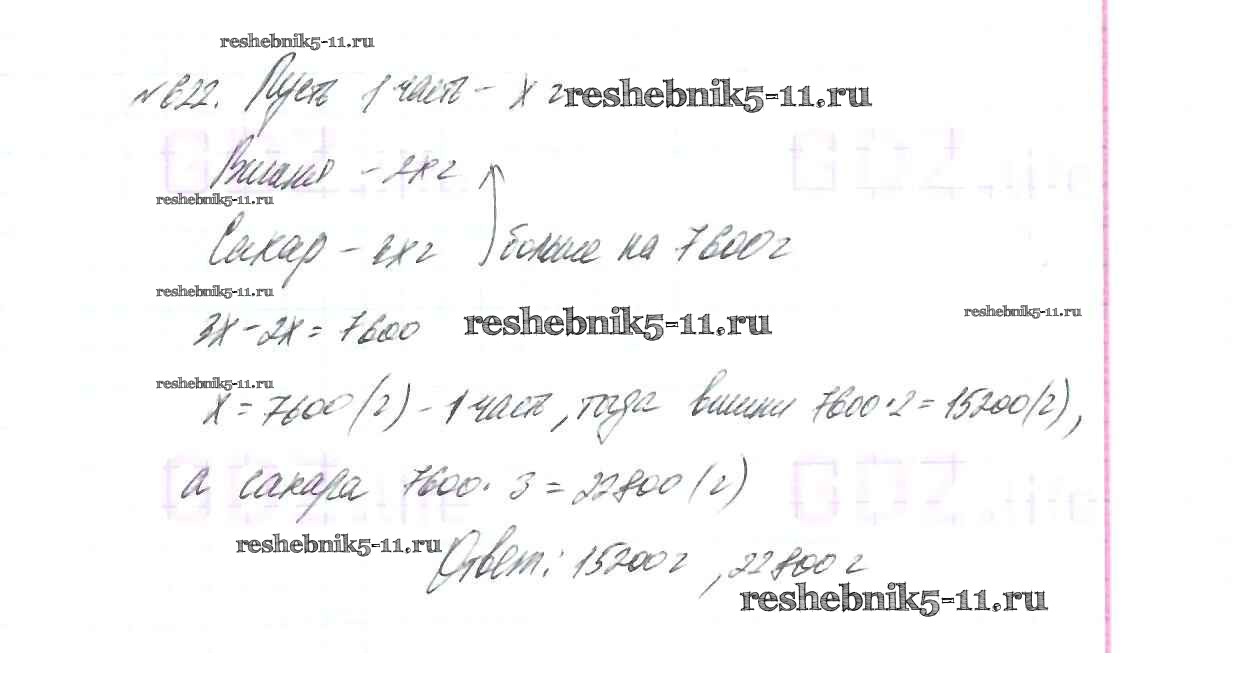 reshebnik5-11.ru
№622. Пусть 1 часть - x г reshebnik5-11.ru
Вишня - 2x г
reshebnik5-11.ru
Сахар - 3x г больше на 7600 г
reshebnik5-11.ru
3x - 2x = 7600 reshebnik5-11.ru reshebnik5-11.ru
reshebnik5-11.ru
x = 7600 (г) - 1 часть, тогда вишни 7600 · 2 = 15200 (г),
а сахара 7600 · 3 = 22800 (г)
reshebnik5-11.ru
Ответ: 15200 г, 22800 г
reshebnik5-11.ru